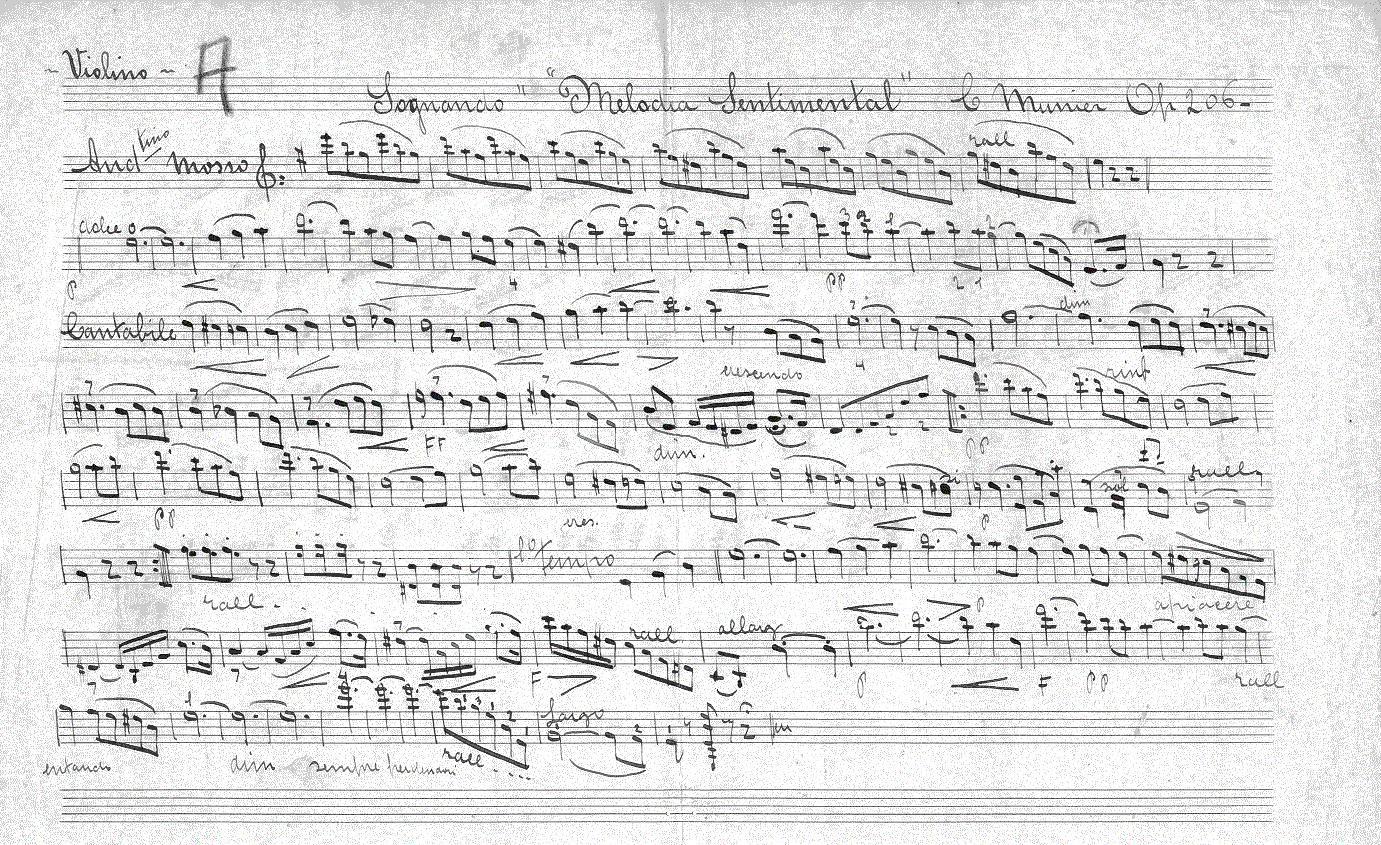 ~ Violino ~ A
Sognando" "Melodia Sentimental" C Munier Op 206-
And tino mosso rall
dolce
p 4 pp 2 1
Cantabile dim
crescendo 4 rinf
FF dim. pp
sol rall
pp cres. p
1º tempo
rall . . apiacere
rall allarg
F p F pp rall
Largo
entando dim sempre rall....